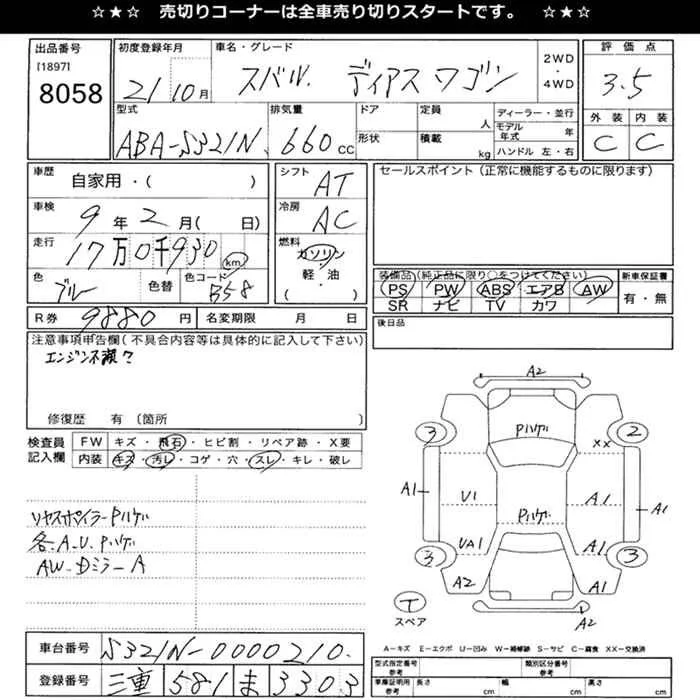 ☆★☆ 売切りコーナーは全車売り切りスタートです。 ☆★☆
出品番号
[1897]
8058
初度登録年月
21 10月
車名・グレード
スバル ディアス ワゴン
2WD
・
4WD
評価点
3.5
型式
ABA-S321N
排気量
660 cc
ドア
形状
定員 人
積載 kg
ディーラー・並行
モデル年式 年
ハンドル 左・右
外装 内装
C C
車歴
自家用・( )
車検
9年2月( 日)
走行
17万0千930 km
色
ブルー
色替
色コード
B58
シフト
AT
冷房
AC
燃料
ガソリン
・
軽・油
( )
セールスポイント(正常に機能するものに限ります)
装備品(純正品に限り○をつけてください)
PS PW ABS エアB AW
SR ナビ TV カワ
新車保証書
有・無
R券 9880円
名変期限 月 日
後日品
注意事項申告欄(不具合内容等は具体的に記入して下さい)
エンジン不調?
修復歴 有 〔箇所 〕
検査員
記入欄
FW キズ・飛石・ヒビ割・リペア跡・X要
内装 キズ・汚レ・コゲ・穴・スレ・キレ・破レ
リヤスポイラーPハゲ
各.A.U.Pハゲ
AW-DミラーA
A2
3 Pハゲ 2
XX
A1 U1 A1 A1
Pハゲ
UA1 A1
3 3
A2 A1
T
スペア
A2
A-キズ E-エクボ U-凹み W-補修跡 S-サビ C-腐食 XX-交換済
車台番号 S321N-0000210
登録番号 三重 581 ま 3303
型式指定番号 参考
類別区分番号 参考
車庫証明用 参考
長さ cm
幅 cm
高さ cm